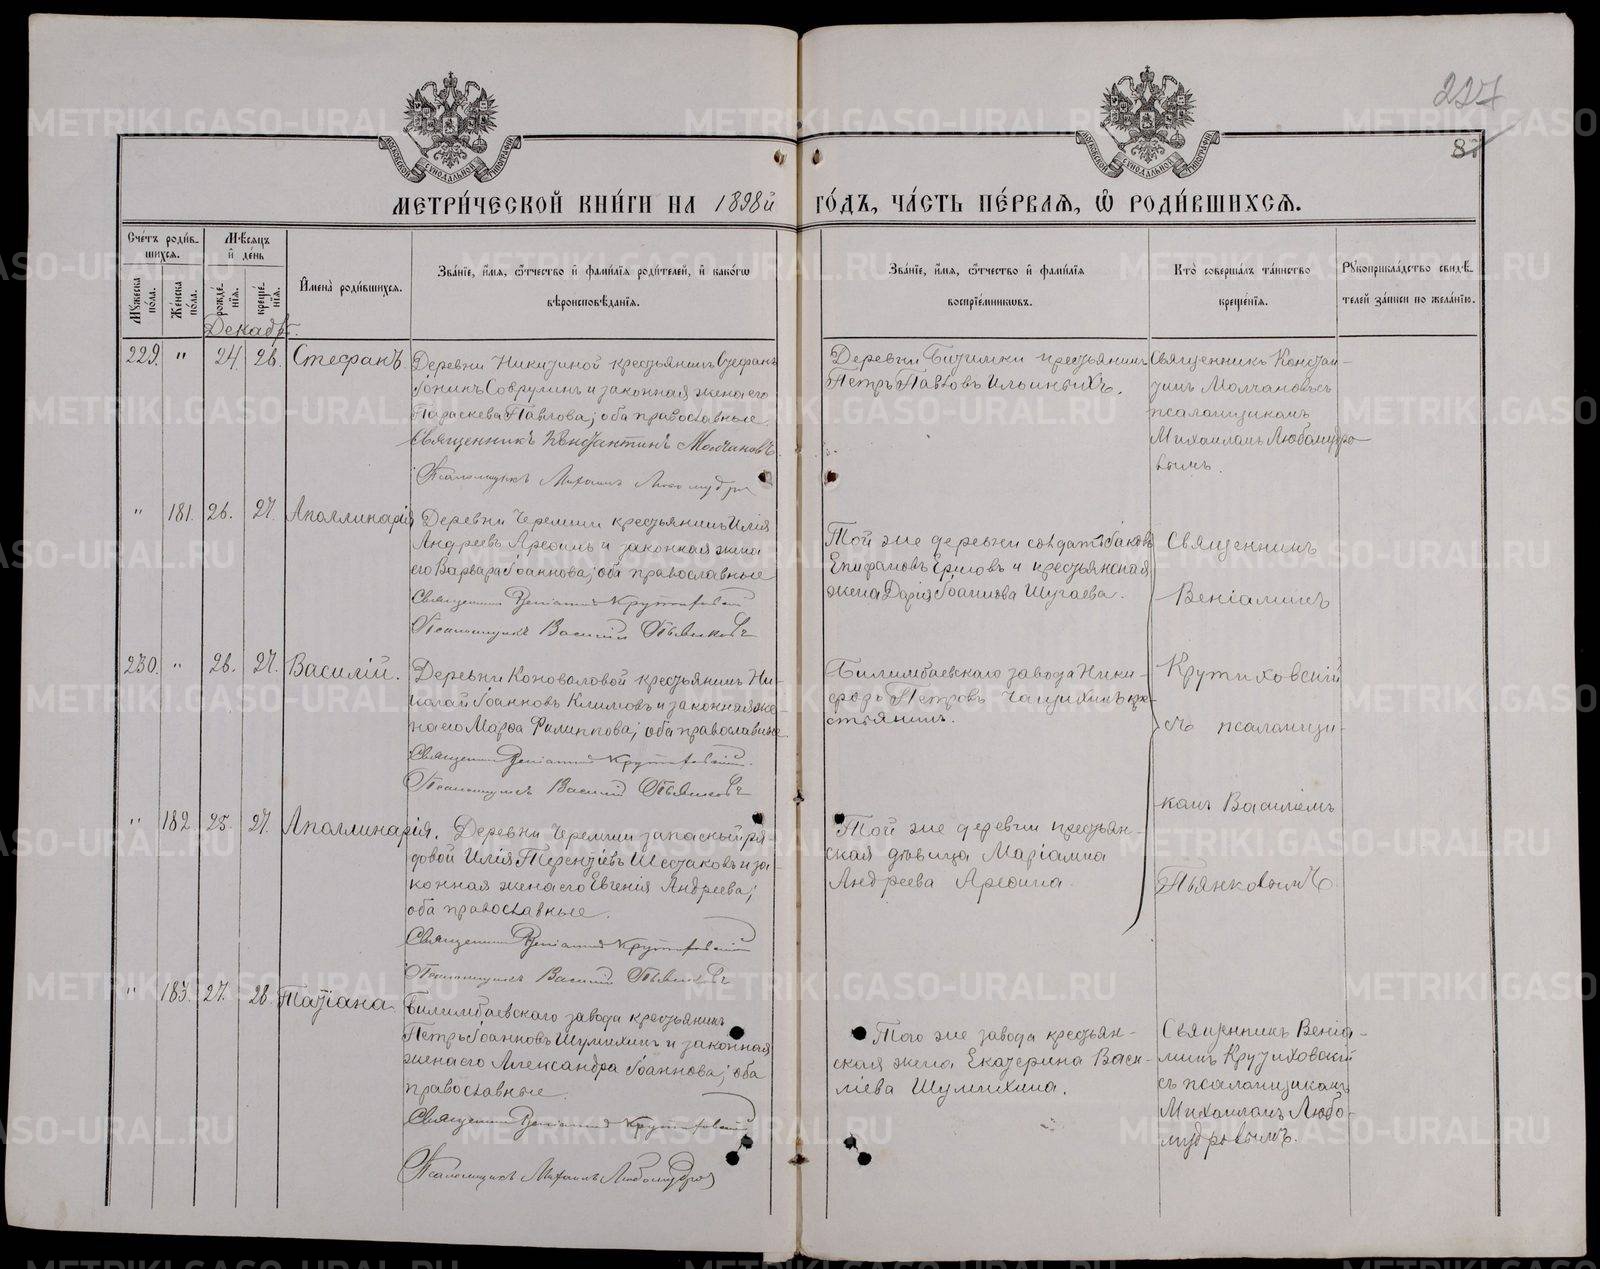 227
8
МОСКОВСКОЙ СѴНОДАЛЬНОЙ ТИПОГРАФІИ
МОСКОВСКОЙ СѴНОДАЛЬНОЙ ТИПОГРАФІИ
МЕТРИ́ЧЕСКОЙ КНИ́ГИ НА 1898й ГО́ДЪ, ЧА́СТЬ ПЕ́РВАѦ, Ѡ҆ РОДИ́ВШИХСѦ.
Сче́тъ роди́в-
шихся.
Мꙋ́жеска по́ла.
Же́нска по́ла.
Мѣ́сяцъ и҆ де́нь
рожде́-нїѧ.
креще́-нїѧ.
И҆мена̀ роди́вшихся.
Зва́нїе, и҆́мѧ, ѻ҆́тчество и҆ фами́лїѧ роди́телей, и҆ како́гѡ
вѣроисповѣ́данїѧ.
Зва́нїе, и҆́мѧ, ѻ҆́тчество и҆ фами́лїѧ
воспрїе́мникѡвъ.
Кто̀ соверша́лъ та́инство
креще́нїѧ.
Рꙋкоприкла́дство свидѣ́-
телей за́писи по жела́нїю.
Декабр.
229. " 24. 26. Стефанъ.
Деревни Никитиной крестьянинъ Стефанъ
Іонинъ Соврулинъ и законная жена его
Параскева Павлова; оба православные.
Священникъ Константинъ Молчановъ.
Псаломщикъ Михаилъ Любомудров
Деревни Битимки крестьянинъ
Петръ Павловъ Ильиныхъ.
Священникъ Констан-
тинъ Молчановъ съ
псаломщикомъ
Михаиломъ Любомудро-
вымъ.
" 181. 26. 27. Аполлинарія
Деревни Черемши крестьянинъ Илія
Андреевъ Арефинъ и законная жена
его Варвара Іоаннова; оба православные
Священникъ Веніаминъ Крутиховскій
Псаломщикъ Василій Пьянковъ
Той же деревни солдатъ Іаковъ
Епифановъ Ершовъ и крестьянская
жена Дарія Іоаннова Шугаева.
Священникъ
Веніаминъ
230. " 26. 27. Василій.
Деревни Коноваловой крестьянинъ Ни-
колай Іоанновъ Климовъ и законная же-
на его Марѳа Филиппова; оба православные.
Священникъ Веніаминъ Крутиховскій.
Псаломщикъ Василій Пьянковъ
Билимбаевскаго завода Ники-
форъ Петровъ Чащихинъ кре-
стьянинъ.
Крутиховскій
съ псаломщи-
" 182. 25. 27. Аполлинарія.
Деревни Черемши запасный ря-
довой Илія Терентіевъ Шестаковъ и за-
конная жена его Евгенія Андреева;
оба православные.
Священникъ Веніаминъ Крутиховскій
Псаломщикъ Василій Пьянковъ
Той же деревни крестьян-
ская дѣвица Маріамна
Андреева Арефина.
комъ Василіемъ
Пьянковымъ
" 183. 27. 28. Татіана
Билимбаевскаго завода крестьянинъ
Петръ Іоанновъ Шумихинъ и законная
жена его Александра Іоаннова; оба
православные.
Священникъ Веніаминъ Крутиховскій
Псаломщикъ Михаилъ Любомудров
Того же завода крестьян-
ская жена Екатерина Васи-
ліева Шумихина.
Священникъ Веніа-
минъ Крутиховскій
съ псаломщикомъ
Михаиломъ Любо-
мудровымъ.
METRIKI.GASO-URAL.RU